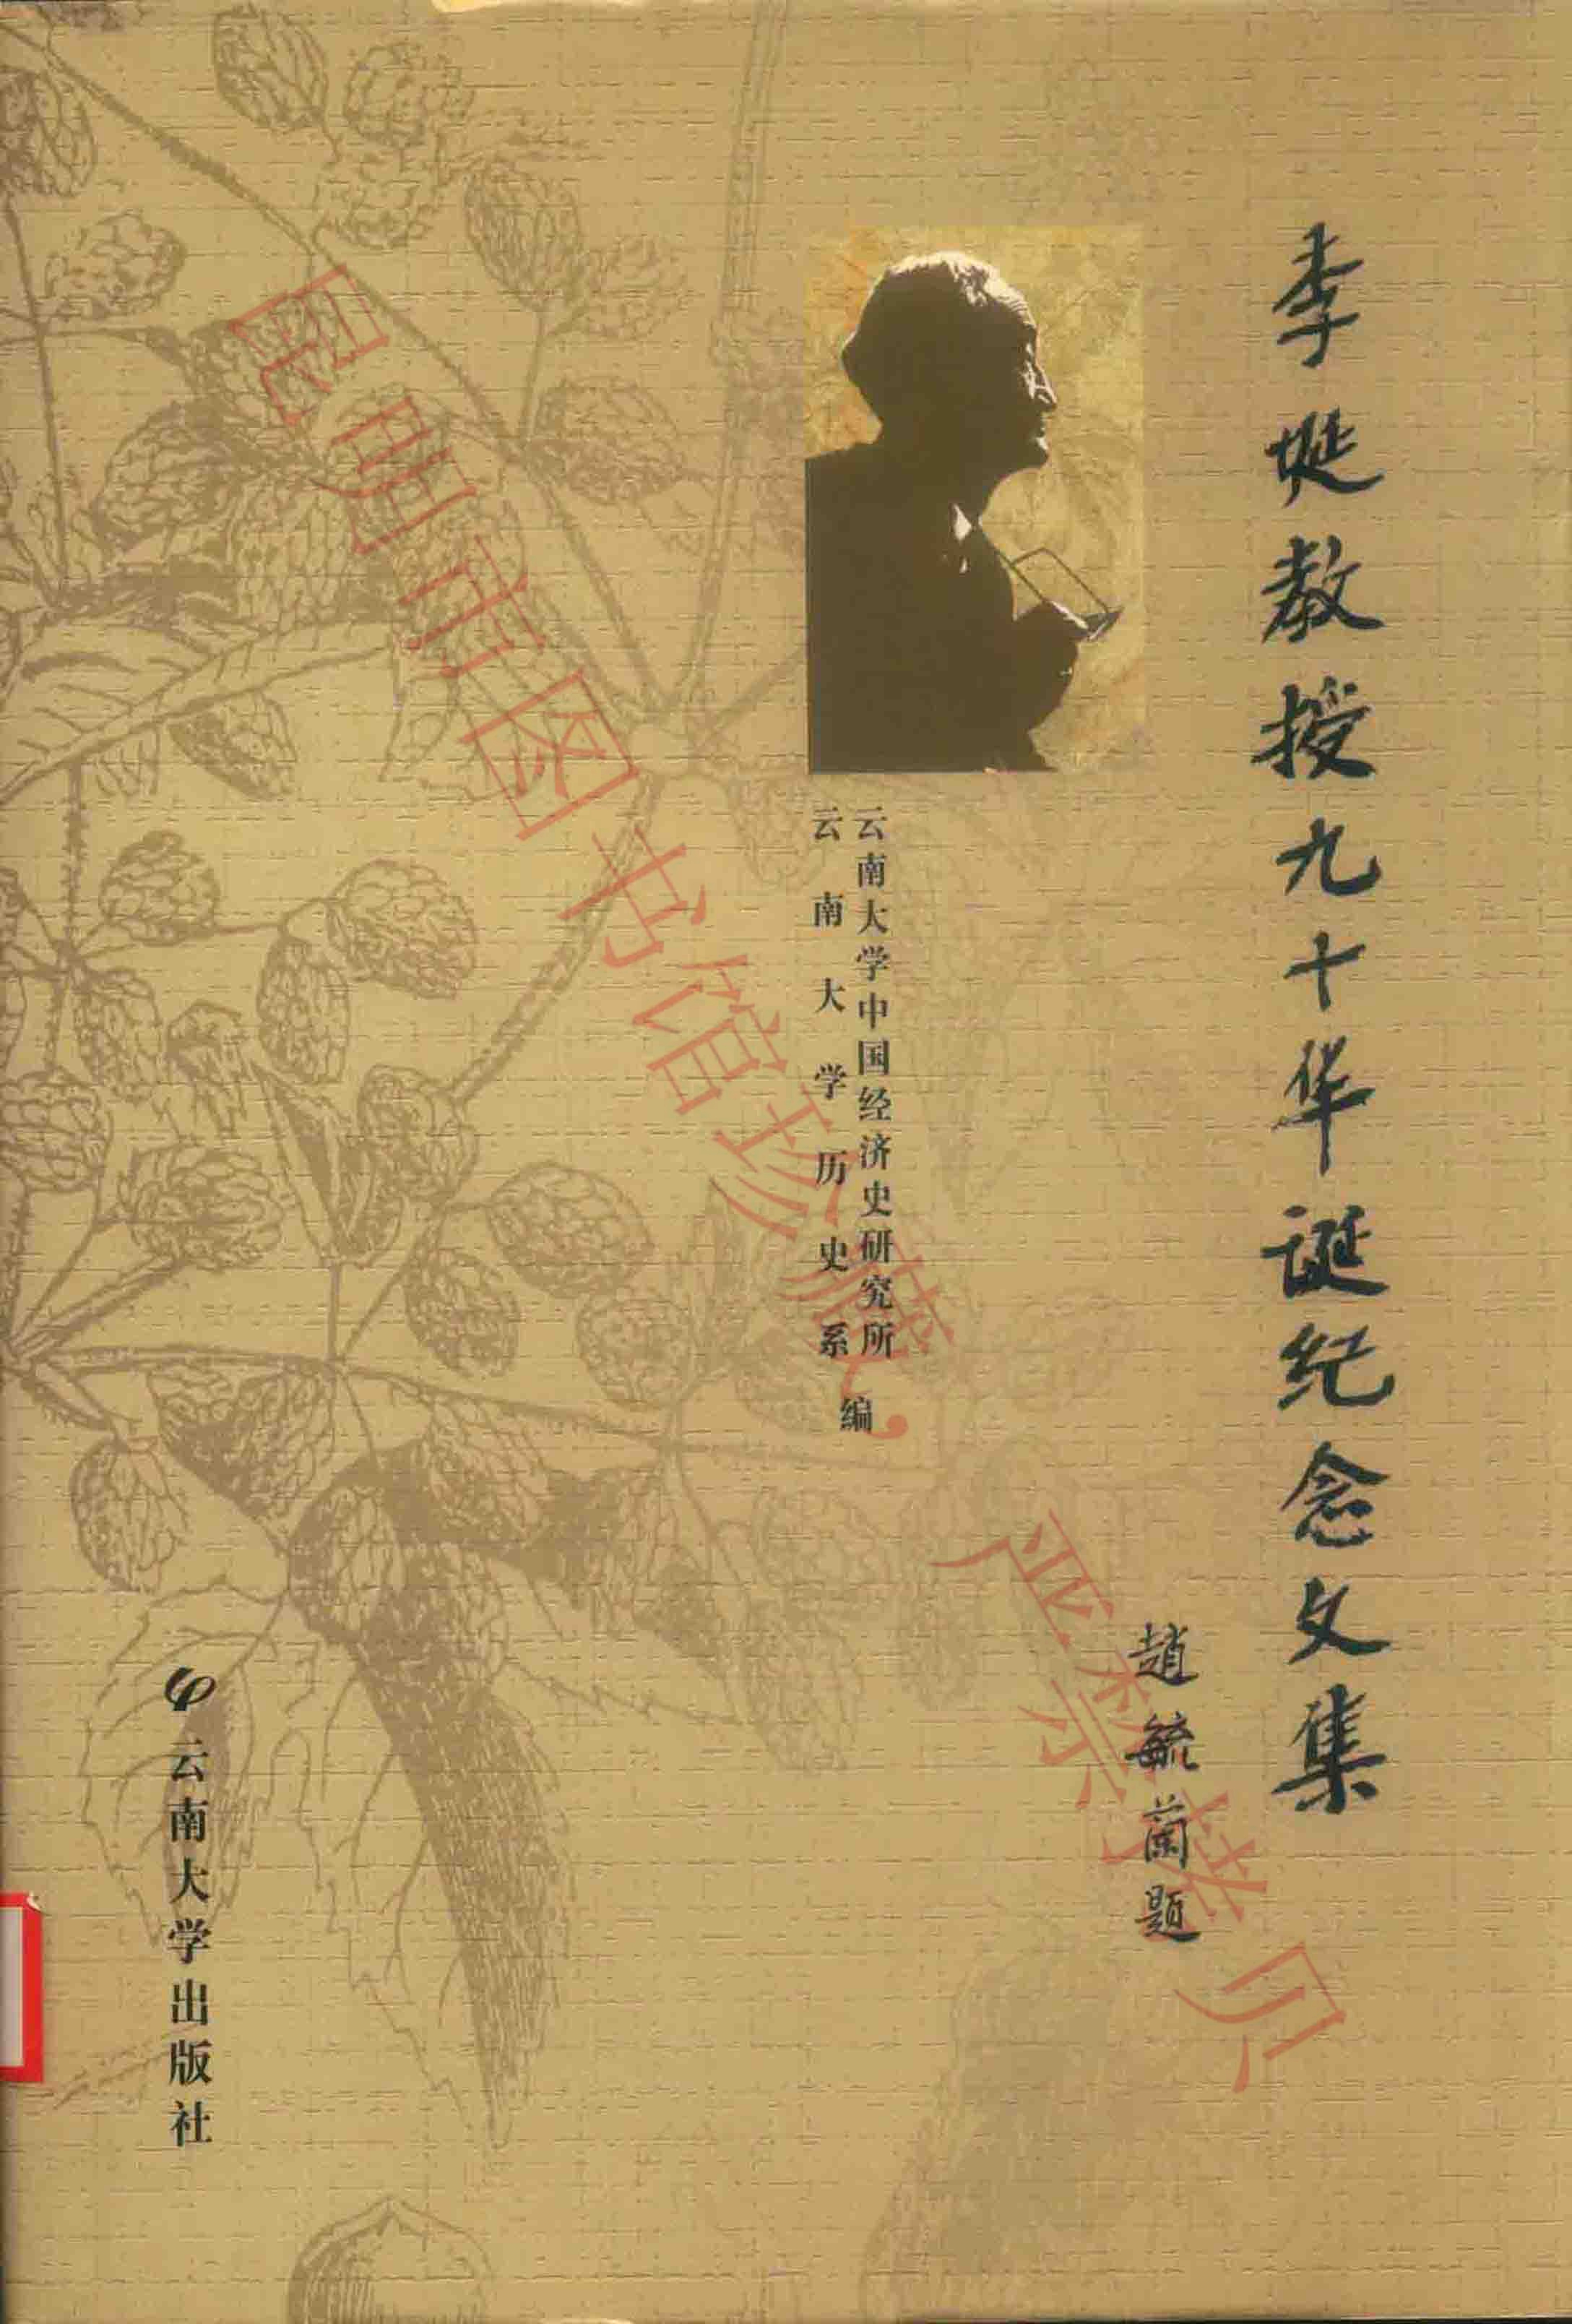 李埏教授九十华诞纪念文集
趙毓蘭题
云南大学中国经济史研究所
云南大学历史系
编
云南大学出版社
昆明市图书馆珍藏，严禁拷贝